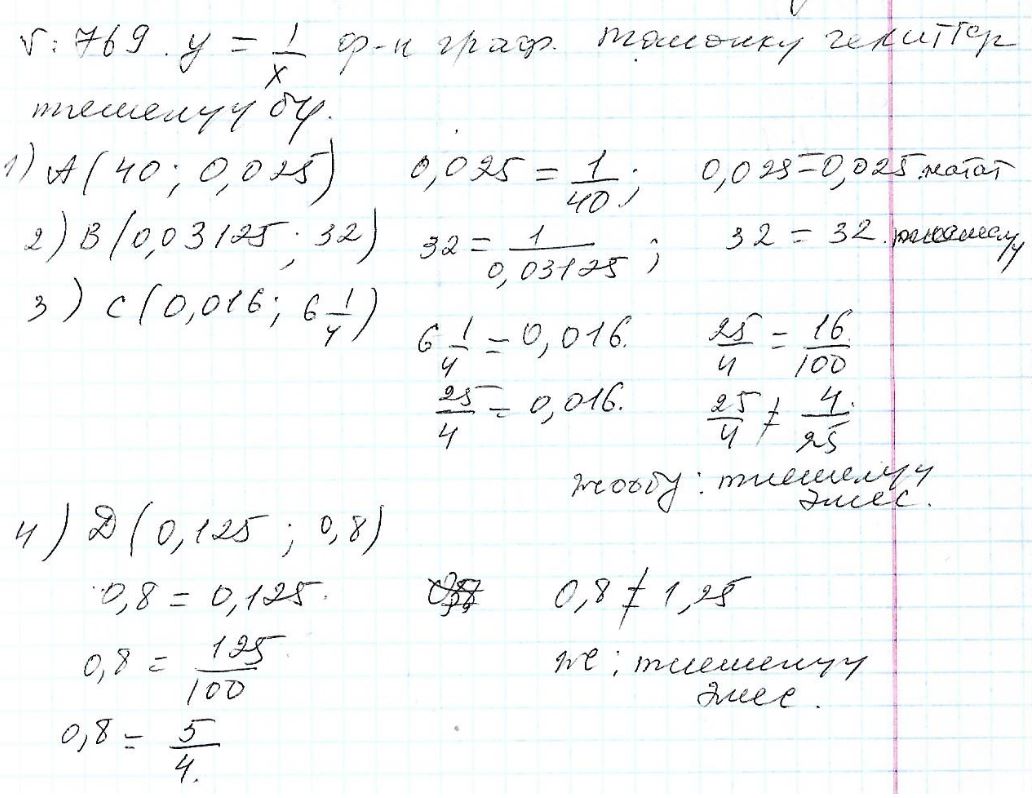 № 769. y = 1/x ф-н граф. төмөнкү чекиттер
тиешелүү бү.
1) A(40; 0,025) 0,025 = 1/40; 0,025=0,025.
2) B(0,03125; 32) 32 = 1/0,03125; 32 = 32. тиешелүү
3) C(0,016; 6 1/4)
6 1/4 = 0,016. 25/4 = 16/100
25/4 = 0,016. 25/4 ≠ 4/25
жообу: тиешелүү
эмес.
4) D(0,125; 0,8)
0,8 = 0,125. 0,8 ≠ 1,25
0,8 = 125/100 ж: тиешелүү
эмес.
0,8 = 5/4.